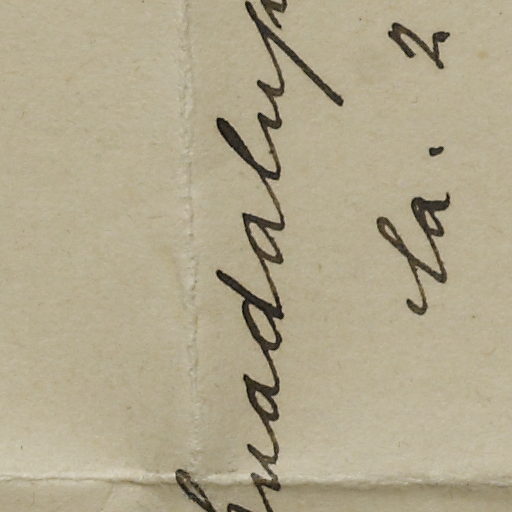 Guadalup
la. 2